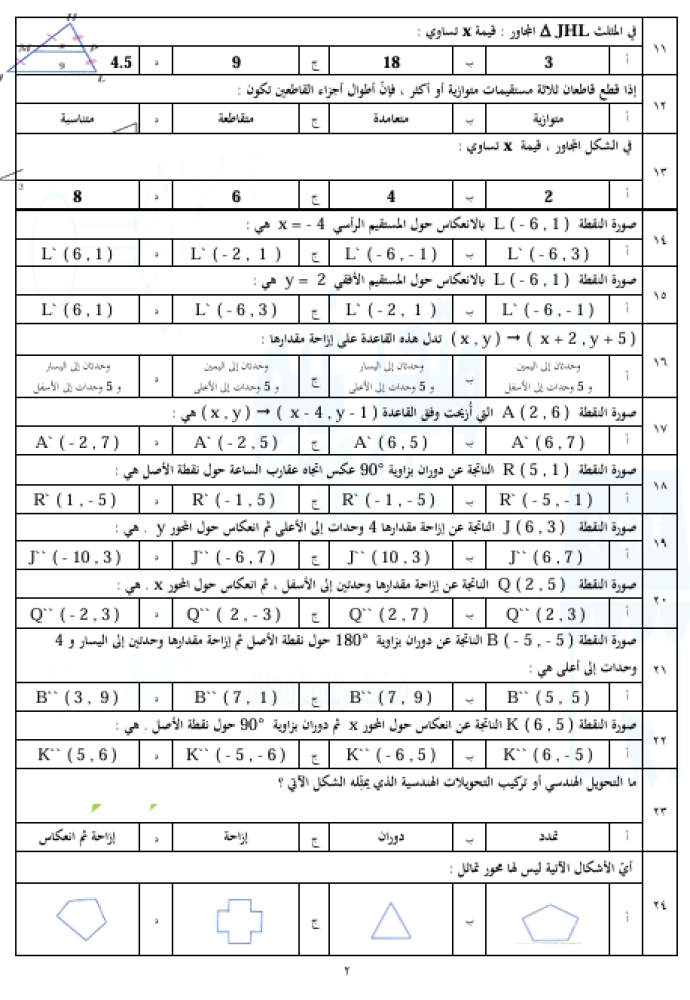 ١١ في المثلث JHL Δ المجاور : قيمة x تساوي :
أ 3 ب 18 ج 9 د 4.5
H
M x P
9
L
١٢ إذا قطع قاطعان ثلاثة مستقيمات متوازية أو أكثر ، فإنّ أطوال أجزاء القاطعين تكون :
أ متوازية ب متعامدة ج متقاطعة د متناسبة
١٣ في الشكل المجاور ، قيمة x تساوي :
3
أ 2 ب 4 ج 6 د 8
١٤ صورة النقطة L ( - 6 , 1 ) بالانعكاس حول المستقيم الرأسي x = - 4 هي :
أ L` ( - 6 , 3 ) ب L` ( - 6 , - 1 ) ج L` ( - 2 , 1 ) د L` ( 6 , 1 )
١٥ صورة النقطة L ( - 6 , 1 ) بالانعكاس حول المستقيم الأفقي y = 2 هي :
أ L` ( - 6 , - 1 ) ب L` ( - 2 , 1 ) ج L` ( - 6 , 3 ) د L` ( 6 , 1 )
١٦ ( x , y ) → ( x + 2 , y + 5 ) تدل هذه القاعدة على إزاحة مقدارها :
أ وحدتان إلى اليمين و 5 وحدات إلى الأسفل ب وحدتان إلى اليسار و 5 وحدات إلى الأعلى ج وحدتان إلى اليمين و 5 وحدات إلى الأعلى د وحدتان إلى اليسار و 5 وحدات إلى الأسفل
١٧ صورة النقطة A ( 2 , 6 ) التي أُزيحت وفق القاعدة ( x , y ) → ( x - 4 , y - 1 ) هي :
أ A` ( 6 , 7 ) ب A` ( 6 , 5 ) ج A` ( - 2 , 5 ) د A` ( - 2 , 7 )
١٨ صورة النقطة R ( 5 , 1 ) الناتجة عن دوران بزاوية 90° عكس اتجاه عقارب الساعة حول نقطة الأصل هي :
أ R` ( - 5 , - 1 ) ب R` ( - 1 , - 5 ) ج R` ( - 1 , 5 ) د R` ( 1 , - 5 )
١٩ صورة النقطة J ( 6 , 3 ) الناتجة عن إزاحة مقدارها 4 وحدات إلى الأعلى ثم انعكاس حول المحور y . هي :
أ J`` ( 6 , 7 ) ب J`` ( 10 , 3 ) ج J`` ( - 6 , 7 ) د J`` ( - 10 , 3 )
٢٠ صورة النقطة Q ( 2 , 5 ) الناتجة عن إزاحة مقدارها وحدتين إلى الأسفل ، ثم انعكاس حول المحور x . هي :
أ Q`` ( 2 , 3 ) ب Q`` ( 2 , 7 ) ج Q`` ( 2 , - 3 ) د Q`` ( - 2 , 3 )
٢١ صورة النقطة B ( - 5 , - 5 ) الناتجة عن دوران بزاوية 180° حول نقطة الأصل ثم إزاحة مقدارها وحدتين إلى اليسار و 4
وحدات إلى أعلى هي :
أ B`` ( 5 , 5 ) ب B`` ( 7 , 9 ) ج B`` ( 7 , 1 ) د B`` ( 3 , 9 )
٢٢ صورة النقطة K ( 6 , 5 ) الناتجة عن انعكاس حول المحور x ثم دوران بزاوية 90° حول نقطة الأصل . هي :
أ K`` ( 6 , - 5 ) ب K`` ( - 6 , 5 ) ج K`` ( - 5 , - 6 ) د K`` ( 5 , 6 )
٢٣ ما التحويل الهندسي أو تركيب التحويلات الهندسية الذي يمثّله الشكل الآتي ؟
أ تمدد ب دوران ج إزاحة د إزاحة ثم انعكاس
٢٤ أيّ الأشكال الآتية ليس لها محور تماثل :
أ ب ج د
٢